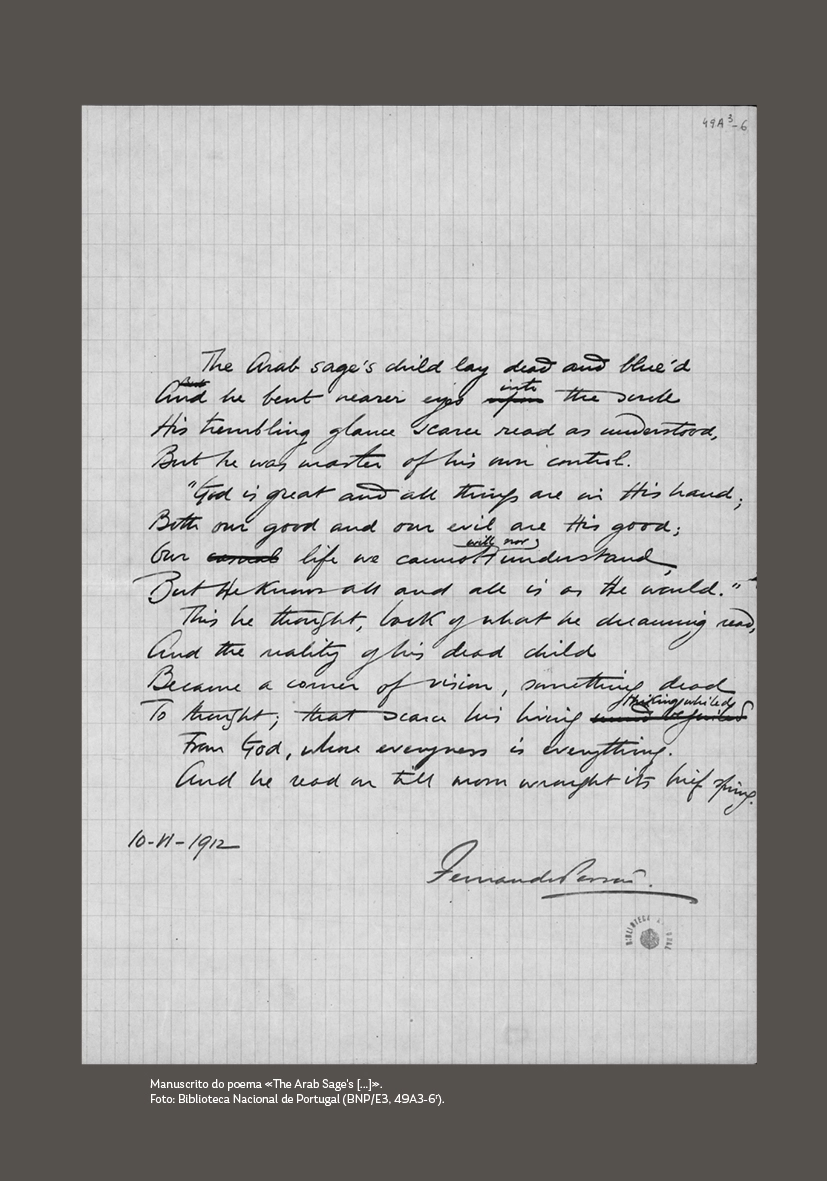 49A³-6
The Arab sage's child lay dead and blue'd
And he bent nearer eyes into the scroll
His trembling glance scarce read as understood,
But he was master of his own control.
"God is great and all things are in His hand;
Both our good and our evil are His good;
will nor
Our casual life we cannot understand,
But He knows all and all is as He would."
This he thought, back of what he dreaming read,
And the reality of his dead child
Became a corner of vision, something dead
thinking whiled
To thought; that scarce his living
From God, whose everyness is everything.
And he read on till morn wrought its brief spring.
10-VI-1912
Fernando Pessoa.
BIBLIOTECA
Manuscrito do poema «The Arab Sage's [...]».
Foto: Biblioteca Nacional de Portugal (BNP/E3, 49A3-6r).